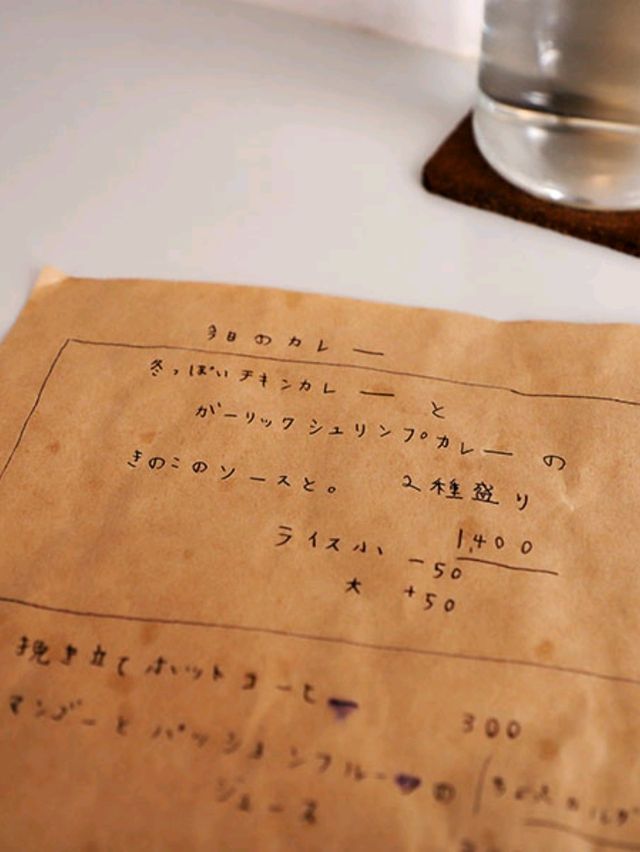 今日のカレー
冬っぽいチキンカレー と
ガーリックシュリンプカレー の
きのこのソースと。 2種盛り
1,400
ライス小 -50
大 +50
挽き立てホットコーヒー 300
マンゴーとパッションフルーツの
ジュース